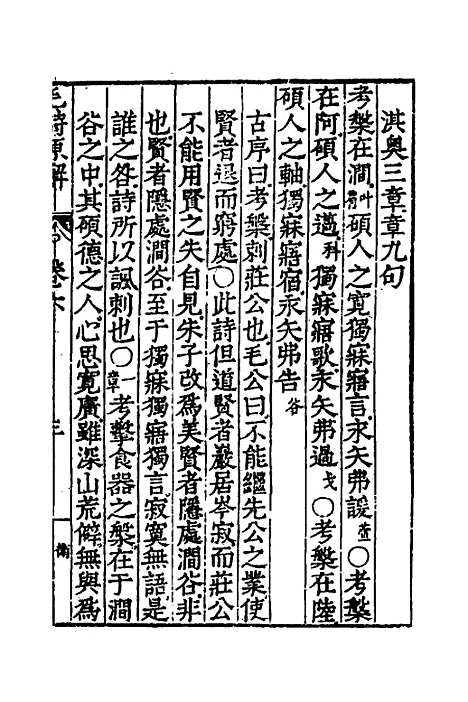 淇奧三章章九句
考槃在澗叶肩碩人之寬獨寐寤言永矢弗諼○考槃
在阿碩人之薖科獨寐寤歌永矢弗過戈○考槃在陸
碩人之軸獨寐寤宿永矢弗告谷
古序曰考槃刺莊公也毛公曰不能繼先公之業使
賢者退而窮處○此詩但道賢者巖居岑寂而莊公
不能用賢之失自見朱子改爲美賢者隱處澗谷非
也賢者隱處澗谷至于獨寐獨寤獨言寂寞無語是
誰之咎詩所以諷刺也○一章考擊食器之槃在于澗
谷之中其碩德之人心思寬廣雖深山荒僻無與爲
毛詩原解 卷六 三 衛